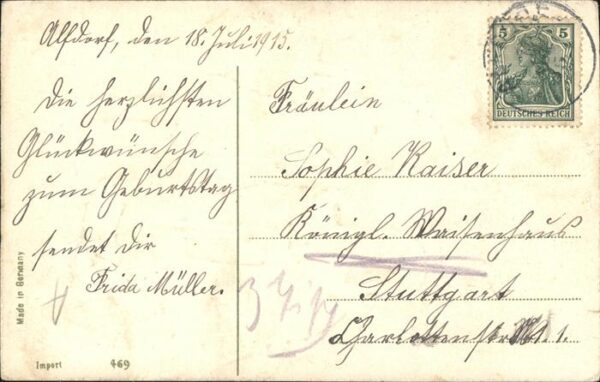 Alfdorf, den 18. Juli 1915.
Die herzlichsten
Glückwünsche
zum Geburtstag
sendet Dir
Frida Müller.
Fräulein
Sophie Kaiser
Königl. Waisenhaus
Stuttgart
Charlottenstr. 1.
5 5
DEUTSCHES REICH
Made in Germany
Import 469